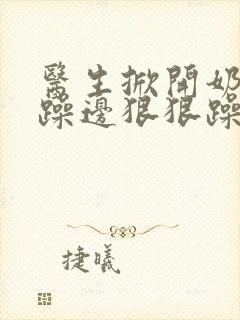 醫生掀開奶
躁邊狠狠躁
捷曦